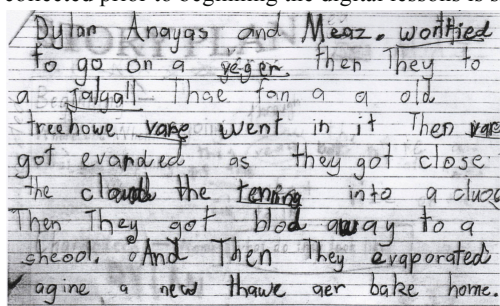 collected prior to beginning the digital lessons is s
Dylan Anayas and Meaz. wontied
to go on a veger. then They to
a Jalgall Thae fan a a old
treehowe vape went in it Then vape
got evarded as they got close
the cloud the tenning into a cluse
Then They got blod away to a
cheool. And Then They evaporated
agine a new thawe aer bake home.